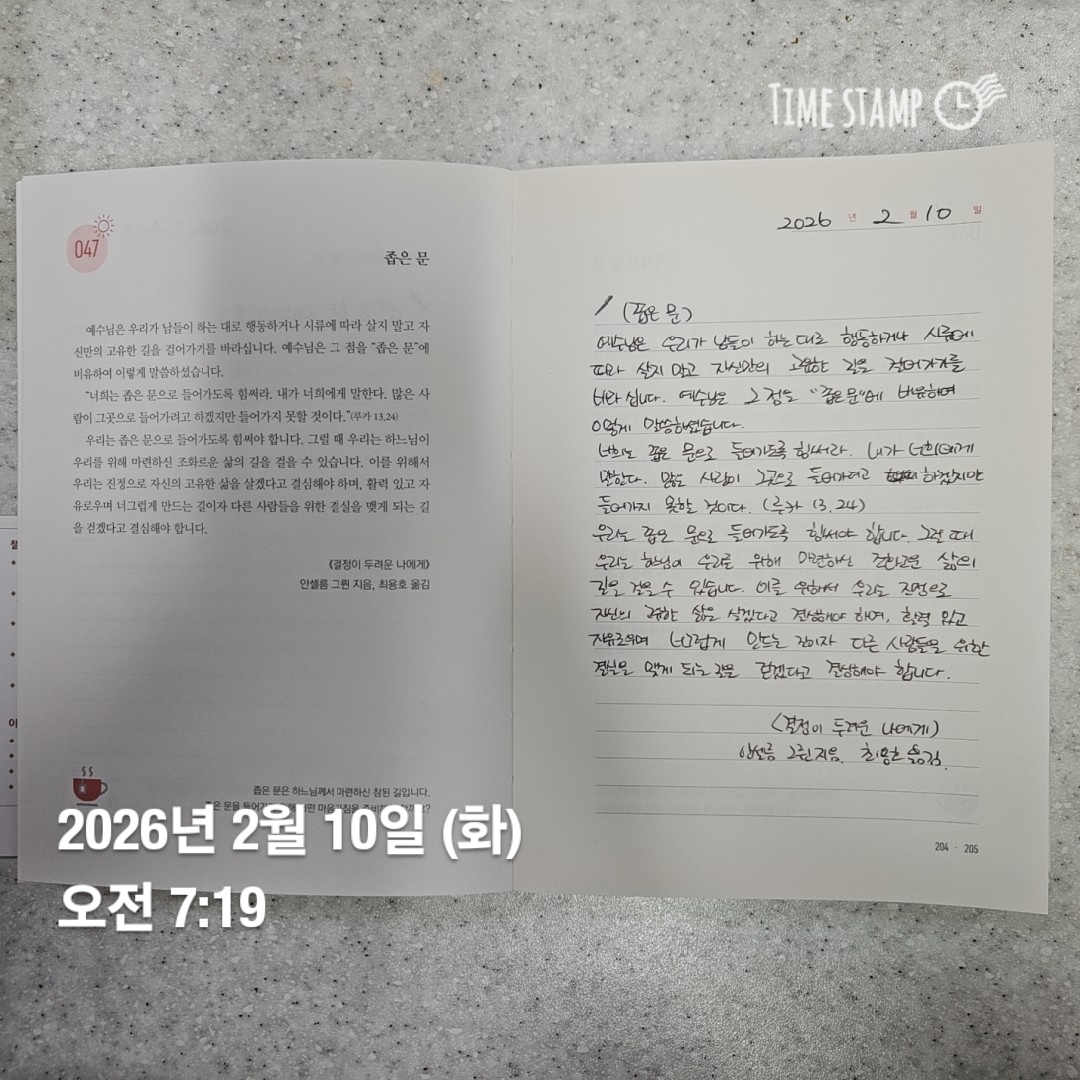 TIME STAMP
047
좁은 문
예수님은 우리가 남들이 하는 대로 행동하거나 시류에 따라 살지 말고 자
신만의 고유한 길을 걸어가기를 바라십니다. 예수님은 그 점을 “좁은 문”에
비유하여 이렇게 말씀하셨습니다.
“너희는 좁은 문으로 들어가도록 힘써라. 내가 너희에게 말한다. 많은 사
람이 그곳으로 들어가려고 하겠지만 들어가지 못할 것이다.”(루카 13,24)
우리는 좁은 문으로 들어가도록 힘써야 합니다. 그럴 때 우리는 하느님이
우리를 위해 마련하신 조화로운 삶의 길을 걸을 수 있습니다. 이를 위해서
우리는 진정으로 자신의 고유한 삶을 살겠다고 결심해야 하며, 활력 있고 자
유로우며 너그럽게 만드는 길이자 다른 사람들을 위한 결실을 맺게 되는 길
을 걷겠다고 결심해야 합니다.
《결정이 두려운 나에게》
안셀름 그륀 지음, 최용호 옮김
좁은 문은 하느님께서 마련하신 참된 길입니다.
좁은 문을 들어가기 위해 어떤 마음가짐을 준비해야 할까요?
2026년 2월 10일
(좁은 문)
예수님은 우리가 남들이 하는 대로 행동하거나 시류에
따라 살지 말고 자신만의 고유한 길을 걸어가기를
바라십니다. 예수님은 그 점을 "좁은 문"에 비유하여
이렇게 말씀하셨습니다.
너희는 좁은 문으로 들어가도록 힘써라. 내가 너희에게
말한다. 많은 사람이 그곳으로 들어가려고 하겠지만
들어가지 못할 것이다. (루카 13.24)
우리는 좁은 문으로 들어가도록 힘써야 합니다. 그럴 때
우리는 하느님이 우리를 위해 마련하신 조화로운 삶의
길을 걸을 수 있습니다. 이를 위해서 우리는 진정으로
자신의 고유한 삶을 살겠다고 결심해야 하며, 활력 있고
자유로우며 너그럽게 만드는 길이자 다른 사람들을 위한
결실을 맺게 되는 길을 걷겠다고 결심해야 합니다.
<결정이 두려운 나에게>
안셀름 그륀 지음. 최용호 옮김.
204 · 205
2026년 2월 10일 (화)
오전 7:19